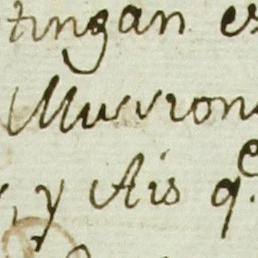 tingan es
Muvrion
, y Ais q.e